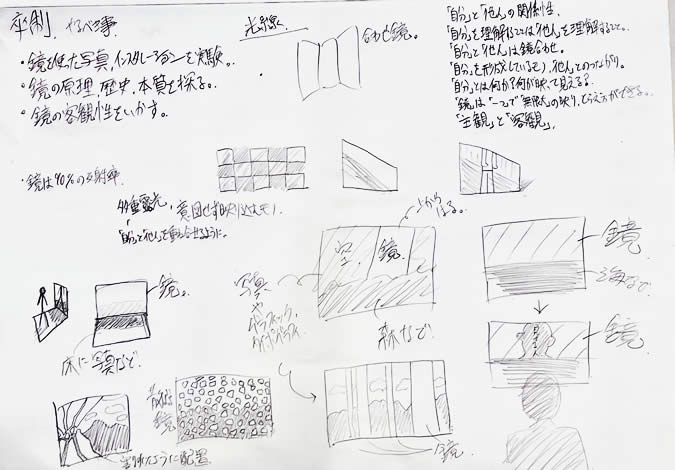 卒制、やる事
・鏡を使た写真、インスタレーションを実験。
・鏡の原理、歴史、本質を探る。
・鏡の客観性をいかす。
光線
合わせ鏡。
「自分」と「他人」の関係性、
「自分」を理解することは「他人」を理解すること。
「自分」と「他人」は鏡合わせ。
「自分」を形成しているモノ、他人とのつながり。
「自分」とは何か?何が映って見える?
「鏡」は"一つ"で"無限大"の映り、とらえ方ができる。
「主観」と「客観」、
・鏡は90%の反射率
多重露光、意図せず映り込むモノ、
「自分」と「他人」を重ね合せるように。
上から
はる。
空、鏡、
写真
森など
鏡
海など
鏡。
床に写真など
鏡
散りばめ
鏡
割れたように配置
鏡